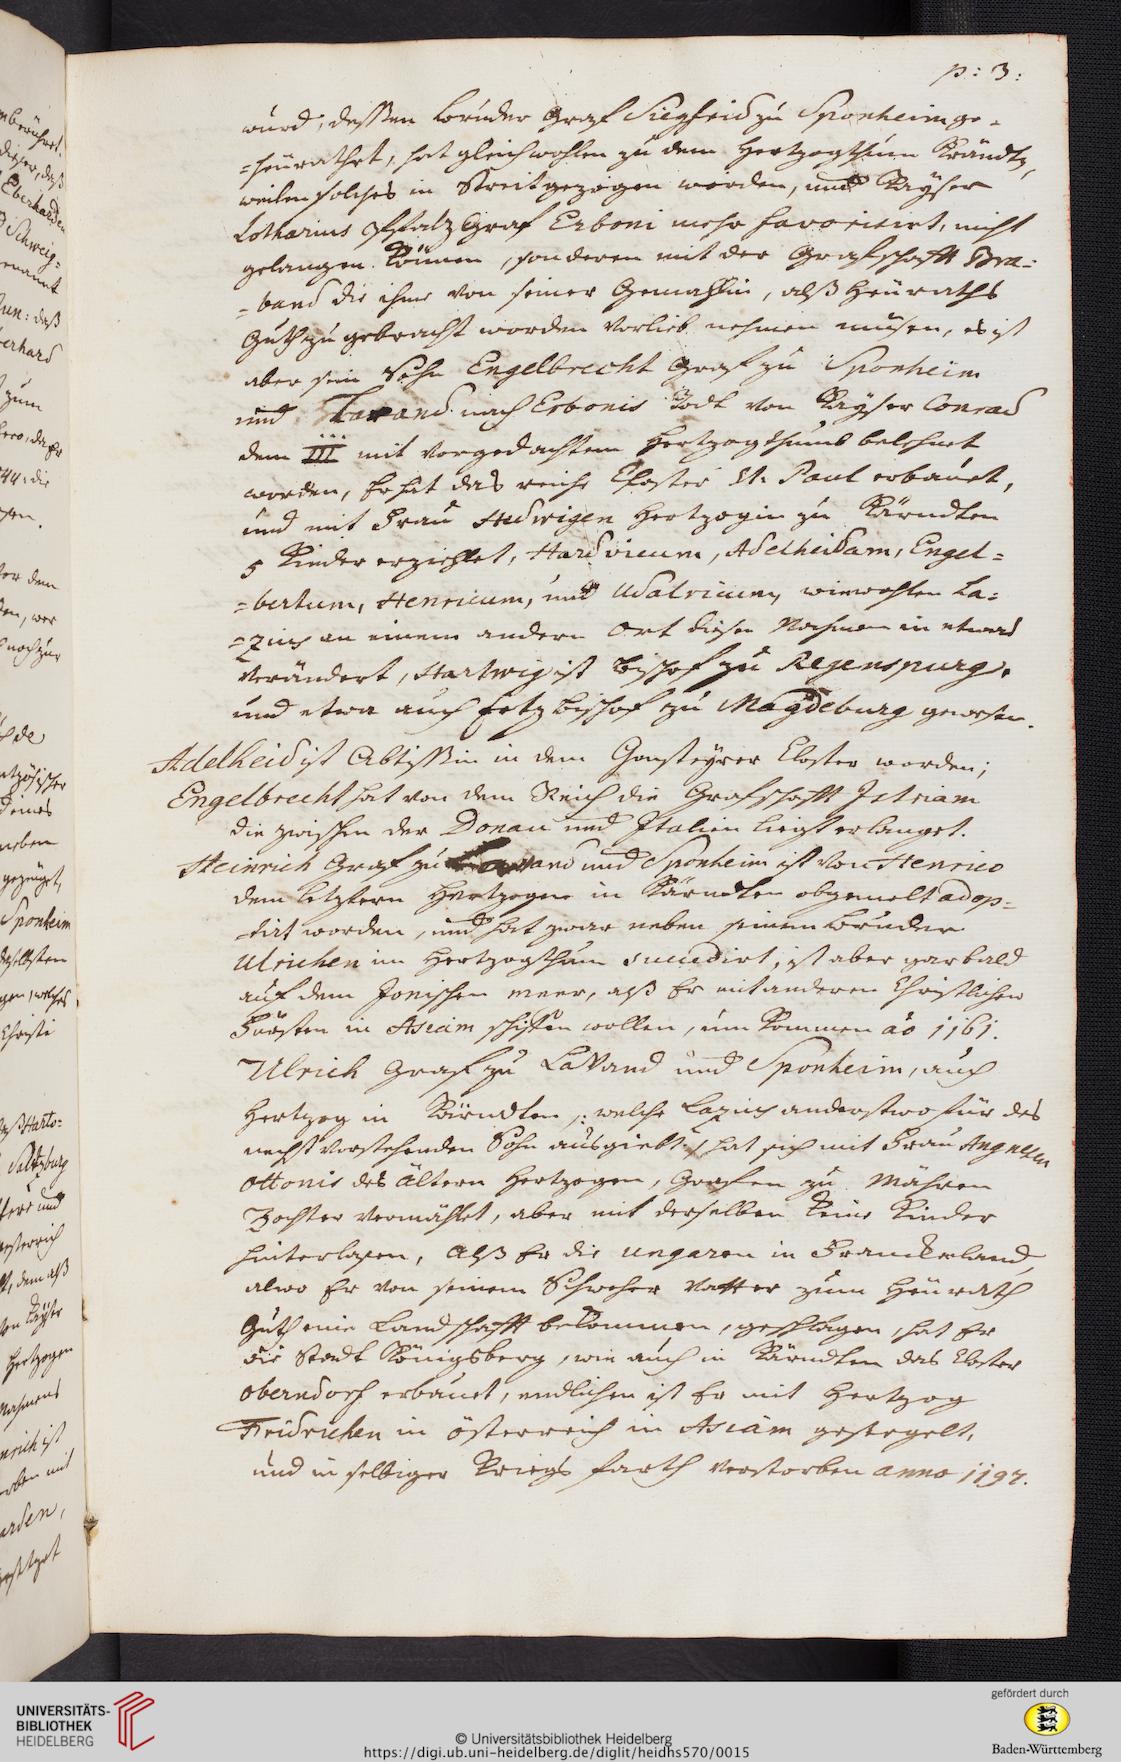 p: 3:
wurd, deßen bruder Graf Siegfrid zu Sponheim ge-
-heürathet, hat gleichwohlen zu dem Hertzogthum Kärndtn,
weilen solches in Streit gezogen worden, und Kayser
Lotharius Pfaltz Graf Erboni mehr favorisirt, nicht
gelangen können, sonderen mit der Grafschafft Bra-
-band die ihme von seiner Gemahlin, alß Heüraths
Guth zu gebracht worden vorlieb nehmen müsen, es ist
aber sein Sohn Engelbrecht Graf zu Sponheim
und Lavand nach Erbonis Todt von Kayser Conrad
dem III mit vorgedachtem Hertzogthumb belehnet
worden, Er hat das reiche Closter St. Paul erbauet,
und mit Frau Hedwigen Hertzogin zu Kärndten
5 Kinder erziehlet, Hardvicum, Adelheidam, Engel-
-bertum, Henricum, und Udalricum, wiewohlen La-
-zius an einem andern Ort diesen Nahmen in etwas
verändert, Hartwig ist Bischof zu Regenspurg,
und etwa auch Ertz Bischof zu Magdeburg gewesen.
Adelheid ist Abtißin in dem Closter worden;
Engelbrecht hat von dem Reich die Grafschafft Istriam
die zwischen der Donau und Italien liegt erlanget.
Heinrich Graf zu Lavand und Sponheim ist von Henrico
dem letztern Hertzogen in Kärndten obgemelt adop-
-tirt worden, und hat zwar neben seinem bruder
Ulrichen im Hertzogthum succedirt, ist aber gar bald
auf dem Jonischen meer, alß Er mit anderen Christlichen
Fürsten in Asiam schiffen wollen, um kommen ao 1161.
Ulrich Graf zu LaVand und Sponheim, auch
Hertzog in Kärndten /: welche Lazius anderstwo für des
nechst vorstehenden Sohn ausgiebt :/ hat sich mit Frau Angnesen
Ottonis des ältern Hertzogen, Grafen zu Mähren
Tochter vermählet, aber mit derselben keine Kinder
hinterlasen, Alß Er die Ungaren in Franckenland,
alwo Er von seinem Schweher Vatter zum Heürath
Guth eine Landschafft bekommen, geschlagen, hat Er
die Stadt Königsberg, wie auch in Kärndten das Closter
Oberndorf erbauet, endlichen ist Er mit Hertzog
Fridrichen in Österreich in Asiam gesegelt,
und in selbiger Kriegs farth verstorben anno 1197.
UNIVERSITÄTS-
BIBLIOTHEK
HEIDELBERG
© Universitätsbibliothek Heidelberg
https://digi.ub.uni-heidelberg.de/diglit/heidhs570/0015
gefördert durch
Baden-Württemberg